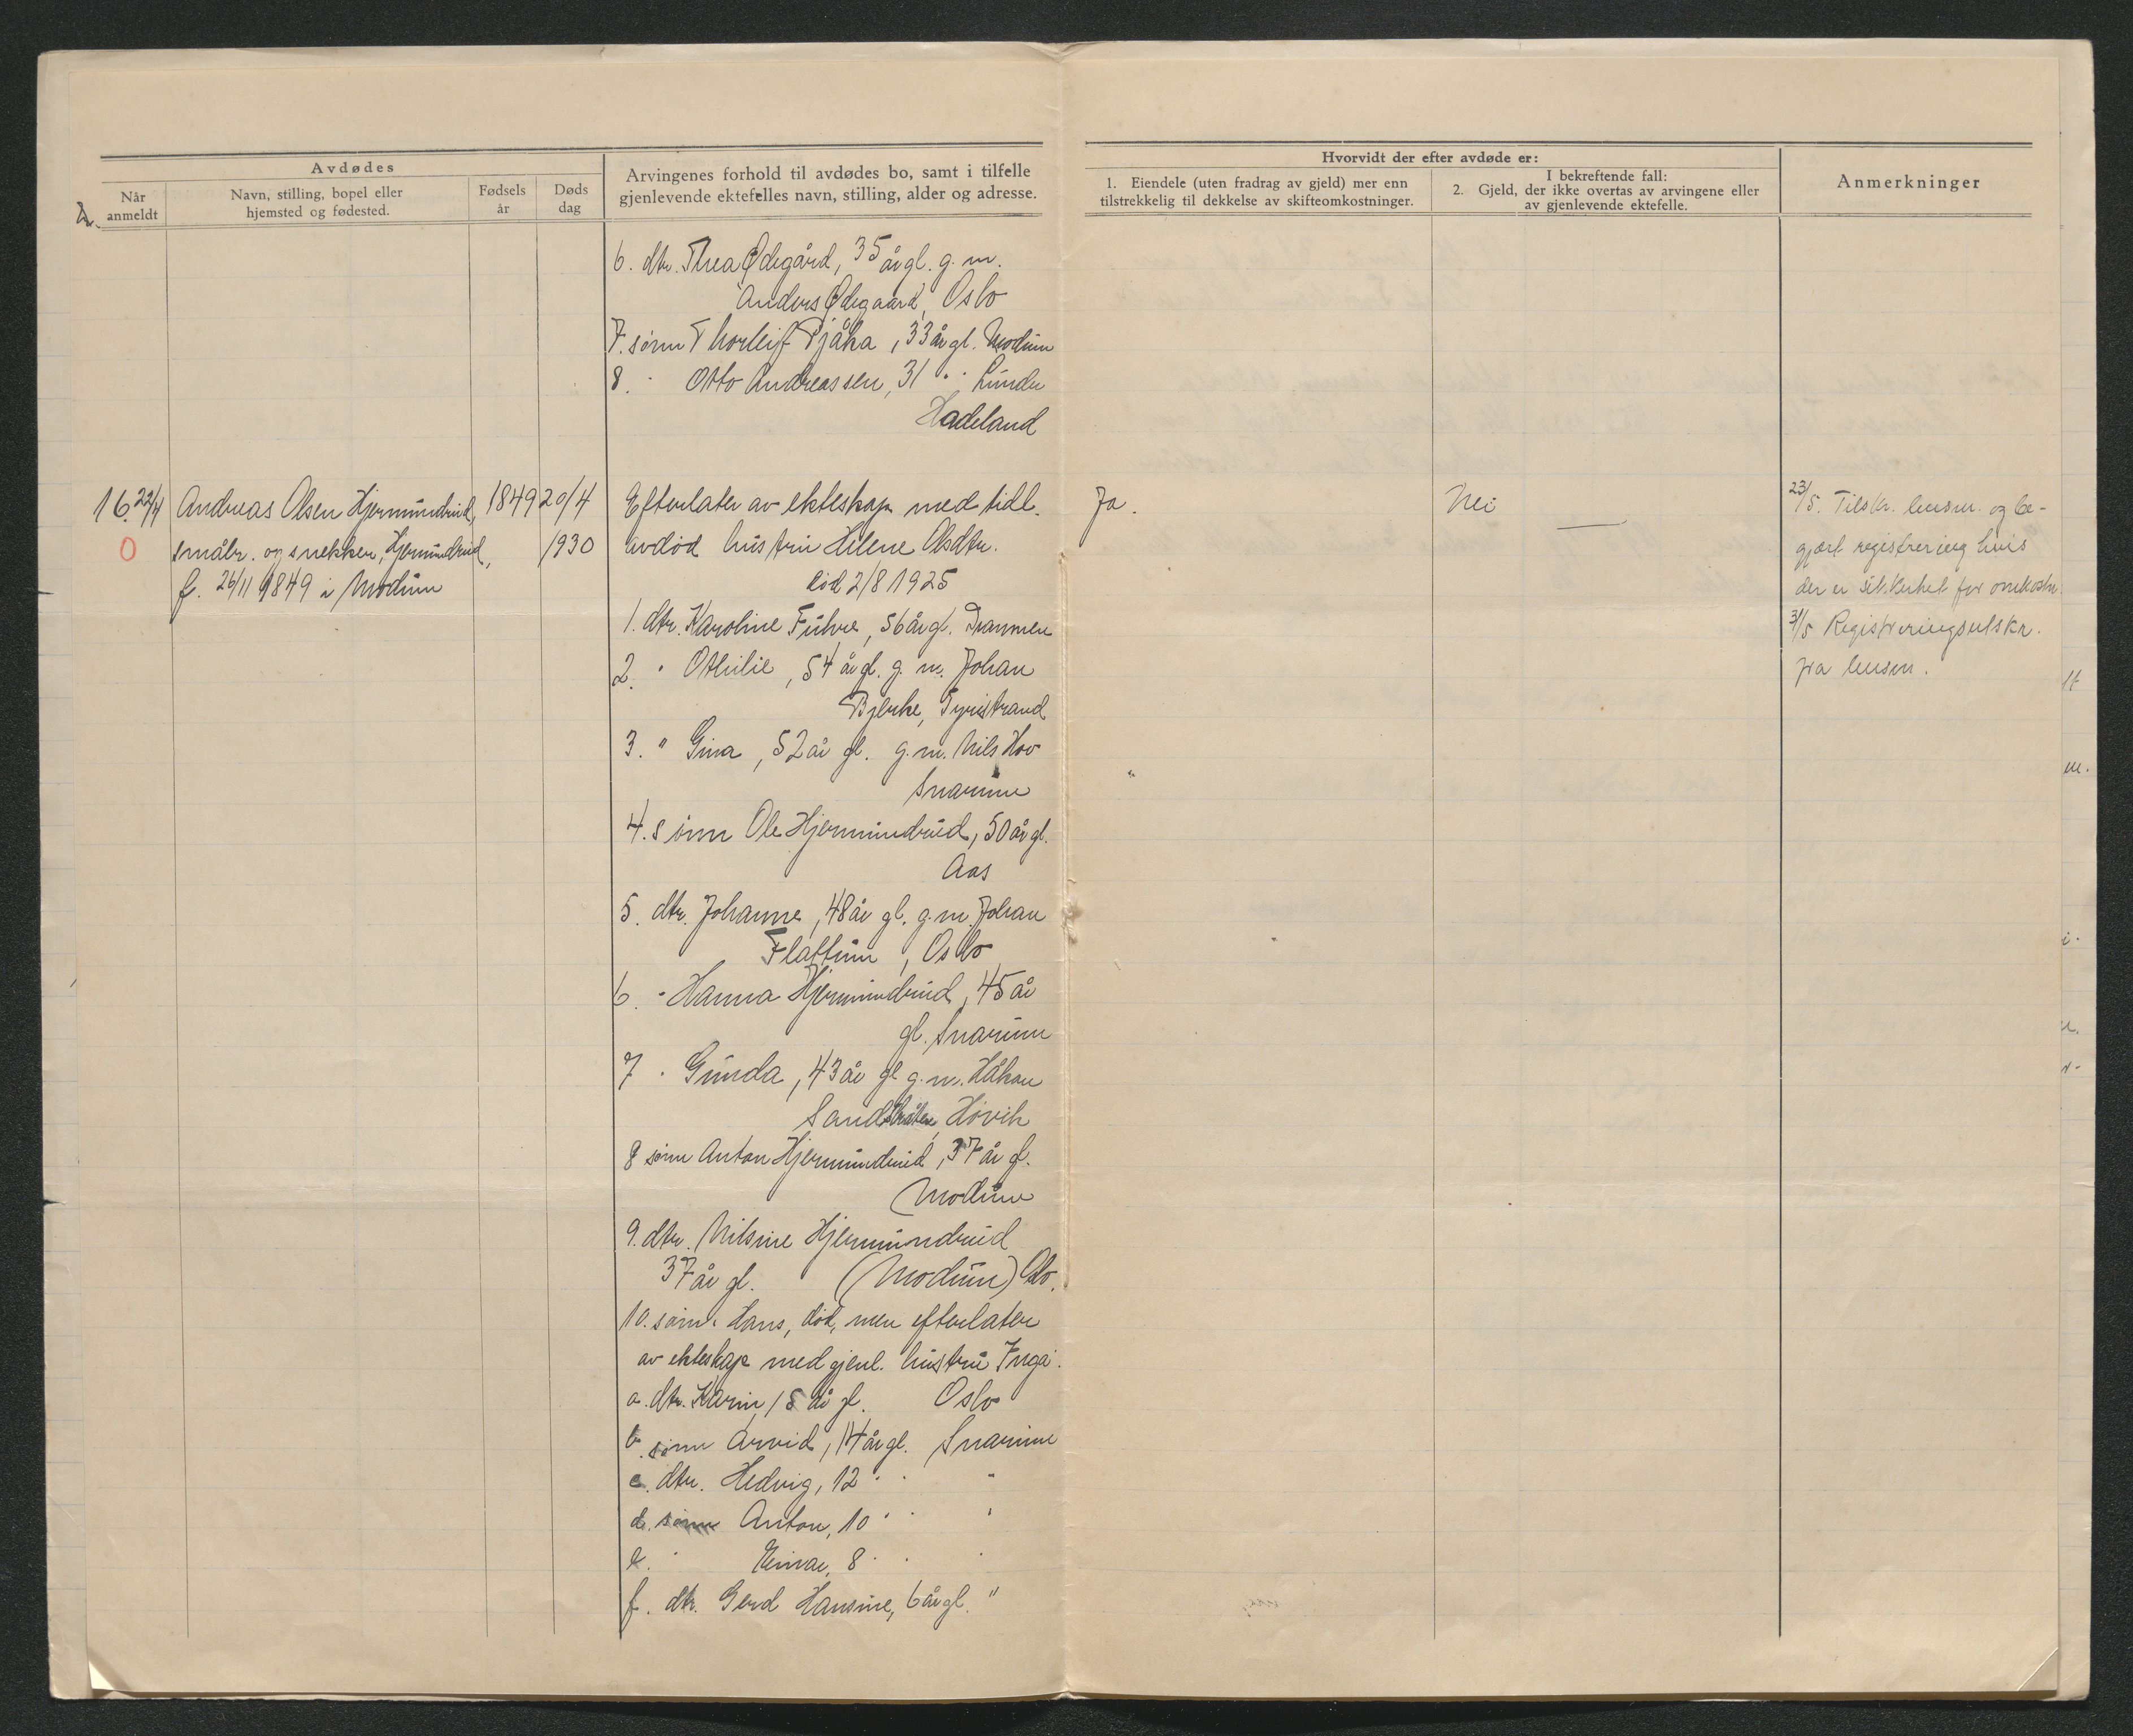 Avdødes
Når anmeldt
Navn, stilling, bopel eller hjemsted og fødested.
Fødsels år
Døds dag
Arvingenes forhold til avdødes bo, samt i tilfelle
gjenlevende ektefelles navn, stilling, alder og adresse.
Hvorvidt der efter avdøde er:
1. Eiendele (uten fradrag av gjeld) mer enn
tilstrekkelig til dekkelse av skifteomkostninger.
I bekreftende fall:
2. Gjeld, der ikke overtas av arvingene eller
av gjenlevende ektefelle.
Anmerkninger
6. dtr. Thea Ødegård, 35 år gl. g. m.
Anders Ødegaard, Oslo
7. sønn Thorleif Pjåka, 33 år gl. Modum
8. " Otto Andreassen, 31 " " Lunder
Hadeland
16. 22/4 Andreas Olsen Hjermundrud, 1849 20/4
0 småbr. og snekker, Hjermundrud, 1930
f. 26/11 1849 i Modum
Efterlater av ekteskap med tidl.
avdød hustru Helene Olsdtr.
død 2/8 1925
1. dtr. Karoline Fuhre, 56 år gl. Drammen
2. " Othilie, 54 år gl. g. m. Johan
Bjerke, Tyristrand
3. " Gina, 52 år gl. g. m. Nils Hov
Snarum
4. sønn Ole Hjermundrud, 50 år gl.
Aas
5. dtr. Johanne, 48 år gl. g. m. Johan
Flattum, Oslo
6. " Hanna Hjermundrud, 45 år
gl. Snarum
7 " Gunda, 43 år gl g. m. Håkon
Sandbråten, Høvik
8 sønn Anton Hjermundrud, 37 år gl.
Modum
9. dtr. Nilsine Hjermundrud
37 år gl. (Modum) Oslo.
10. sønn. Hans, død, men efterlater
av ekteskap med gjenl. hustru Inga.
a. dtr. Karin, 18 år gl. Oslo
b. sønn Arvid, 14 år gl. Snarum
c. dtr. Hedvig, 12 " " "
d. sønn Anton, 10 " " "
e. " Einar, 8 " " "
f. dtr. Gerd Hansine, 6 år gl. "
Ja.
Nei
23/5. Tilskr. lensm. og be-
gjært registrering hvis
der er sikkerhet for omkostn.
31/5 Registreringsutskr.
fra lensm.